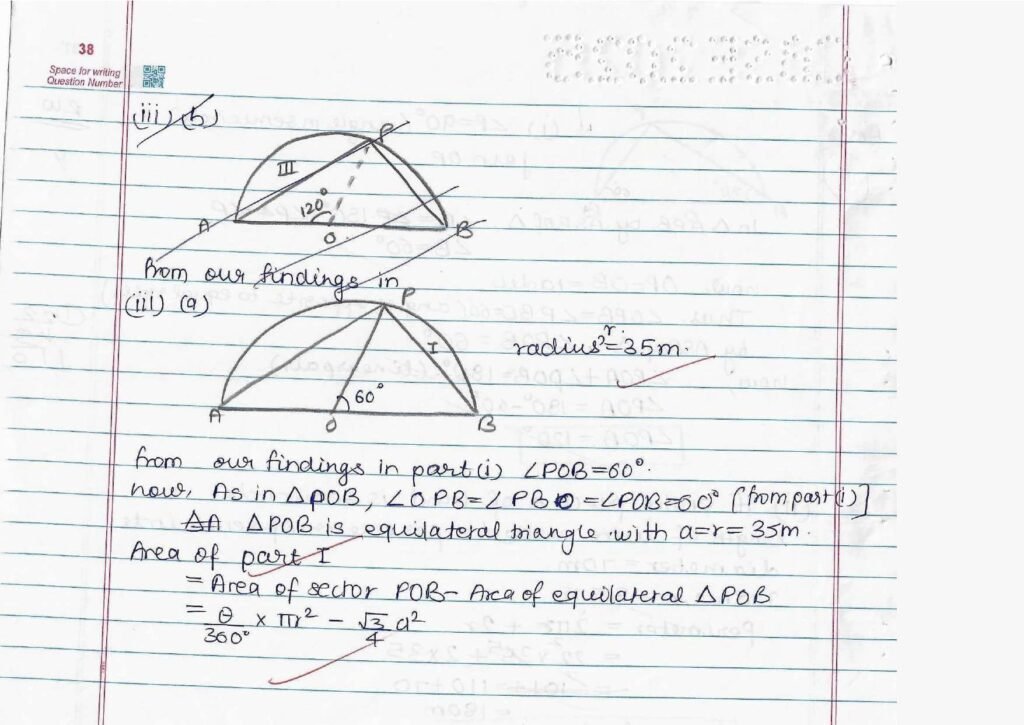 38
Space for writing
Question Number
(iii) (b)
P
III
120°
A
O
B
From our findings in
(iii) (a)
P
I
radius r = 35m.
60°
A
O
B
from our findings in part (i) ∠POB = 60°.
now, As in △POB, ∠OPB = ∠PBO = ∠POB = 60° [from part (i)]
△POB is equilateral triangle with a = r = 35m.
Area of part I
= Area of sector POB – Area of equilateral △POB
= θ/360° × πr² – √3/4 a²